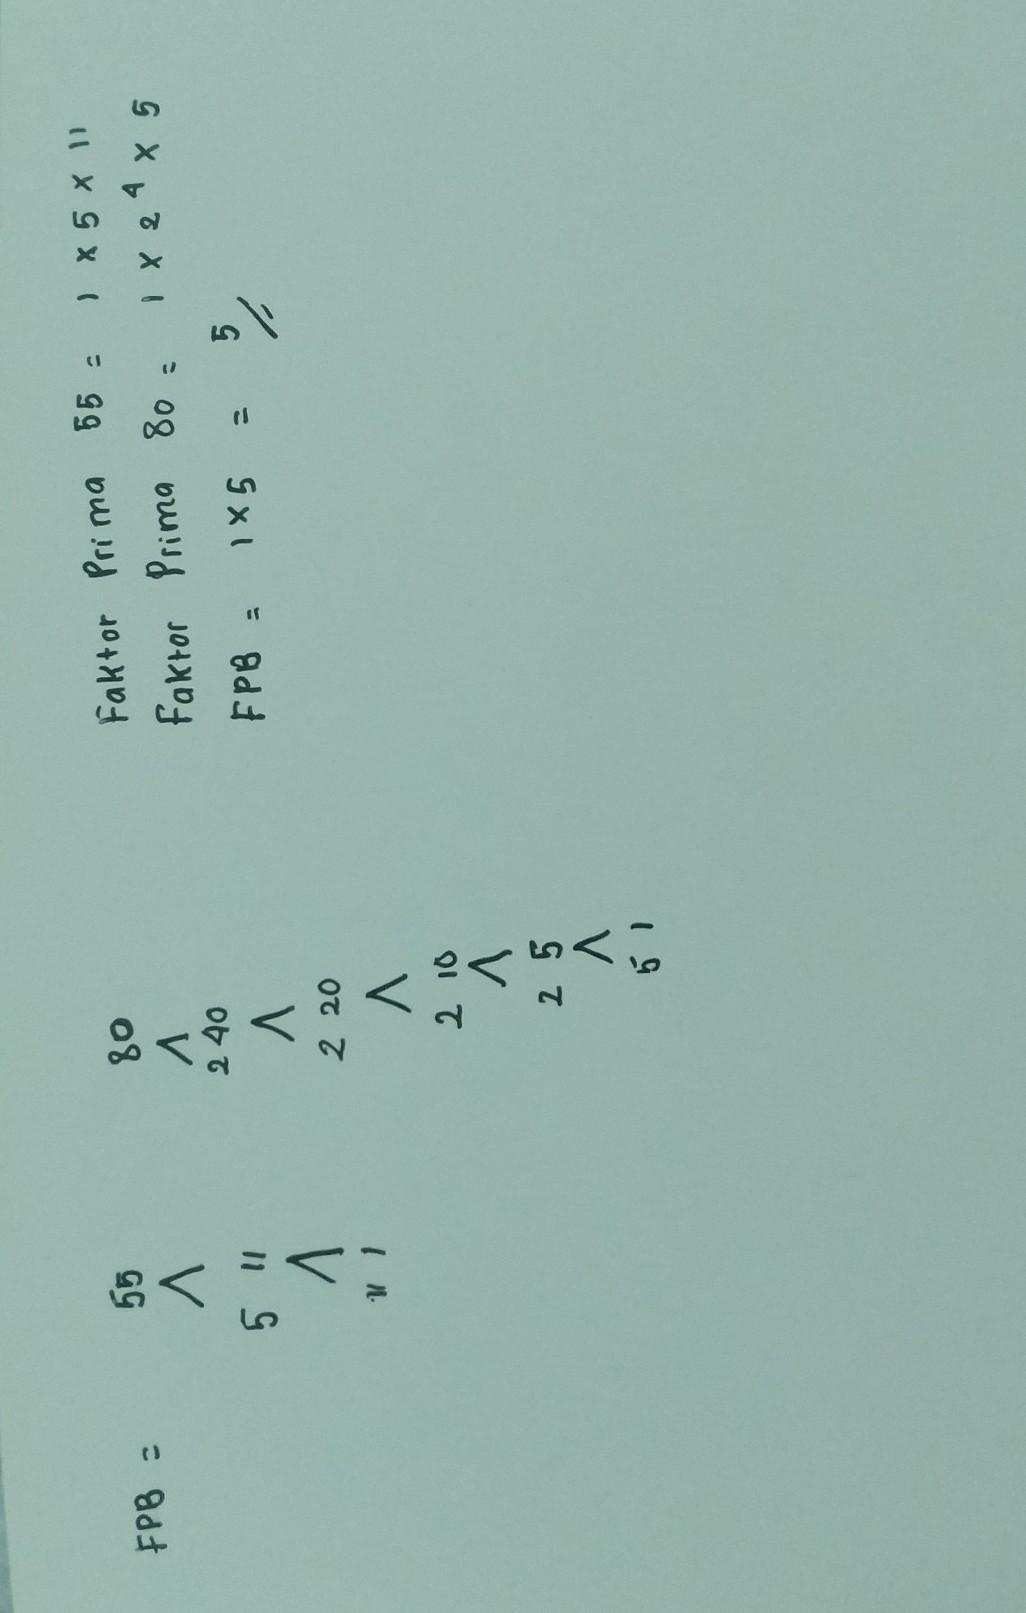 FPB =
55
5 11
11 1
80
2 40
2 20
2 10
2 5
5 1
Faktor Prima 55 = 1 x 5 x 11
Faktor Prima 80 = 1 x 2⁴ x 5
FPB = 1 x 5 = 5